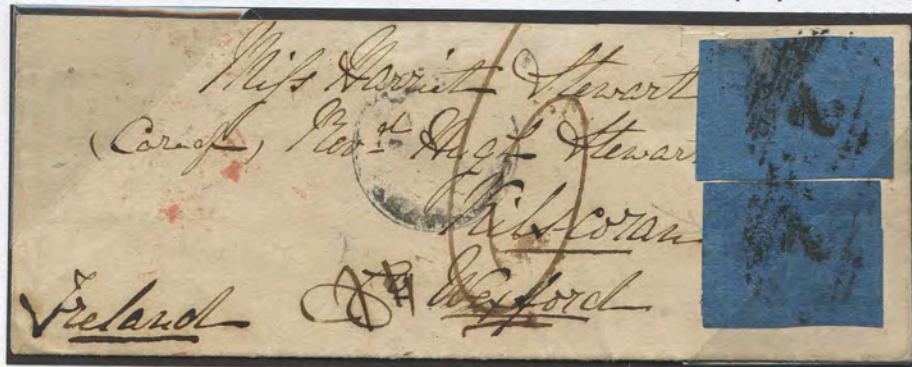 Miss Harriet Stewart
(Care of) Revd Hugh Stewart
Kilscoran
Wexford
Ireland